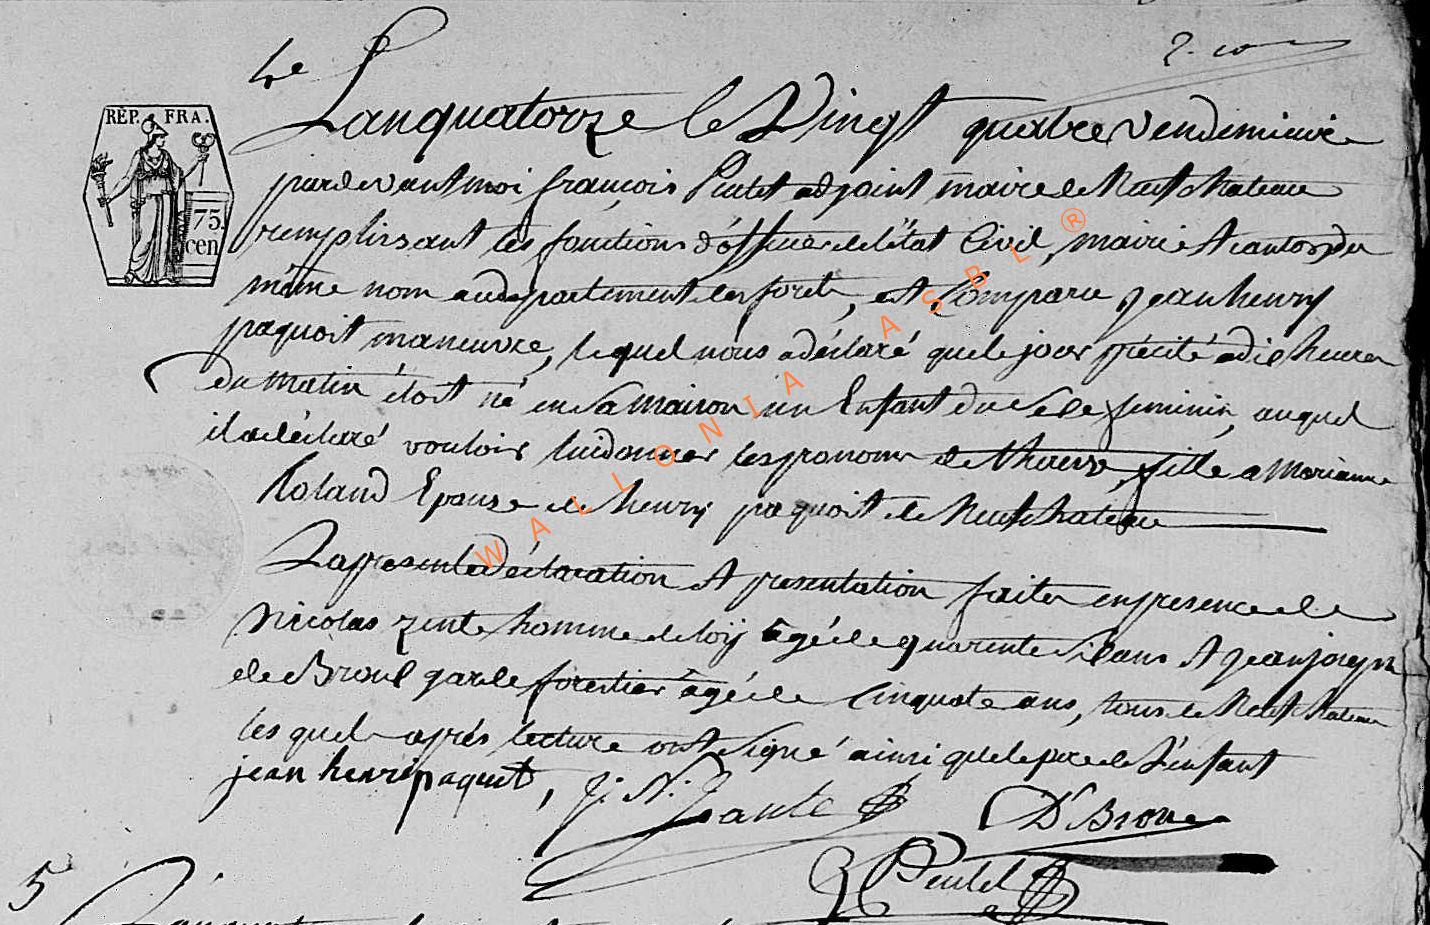 4e
L'an quatorze le Vingt quatre vendemiaire
pardevant moi françois Pentel adjoint maire de Neufchateau
remplissant les fonctions d'officier de l'état Civil, mairie et canton du
même nom au departement des forets, est Comparu jean henry
paquoit maneuvre, lequel nous a déclaré que le jour précité a dix heures
du matin étoit né en sa maison un Enfant du sexe feminin, auquel
il a déclaré vouloir lui donner les pronoms de fille a Marianne
Roland Epouse de henry paquoit de Neufchateau
La presente déclaration et presentation faites en presence de
Nicolas zente homme de loij âgé de quarente six ans et jean joseph
de Broux garde forestier âgé de Cinquate ans, tous de Neufchateau
les quels après lecture ont signé ainsi que le pere de L'enfant
jean henri paquet, J. N. Zante D'Broux
Pentel
5
RÉP. FRA.
75.
cen
WALLONIA ASBL ®